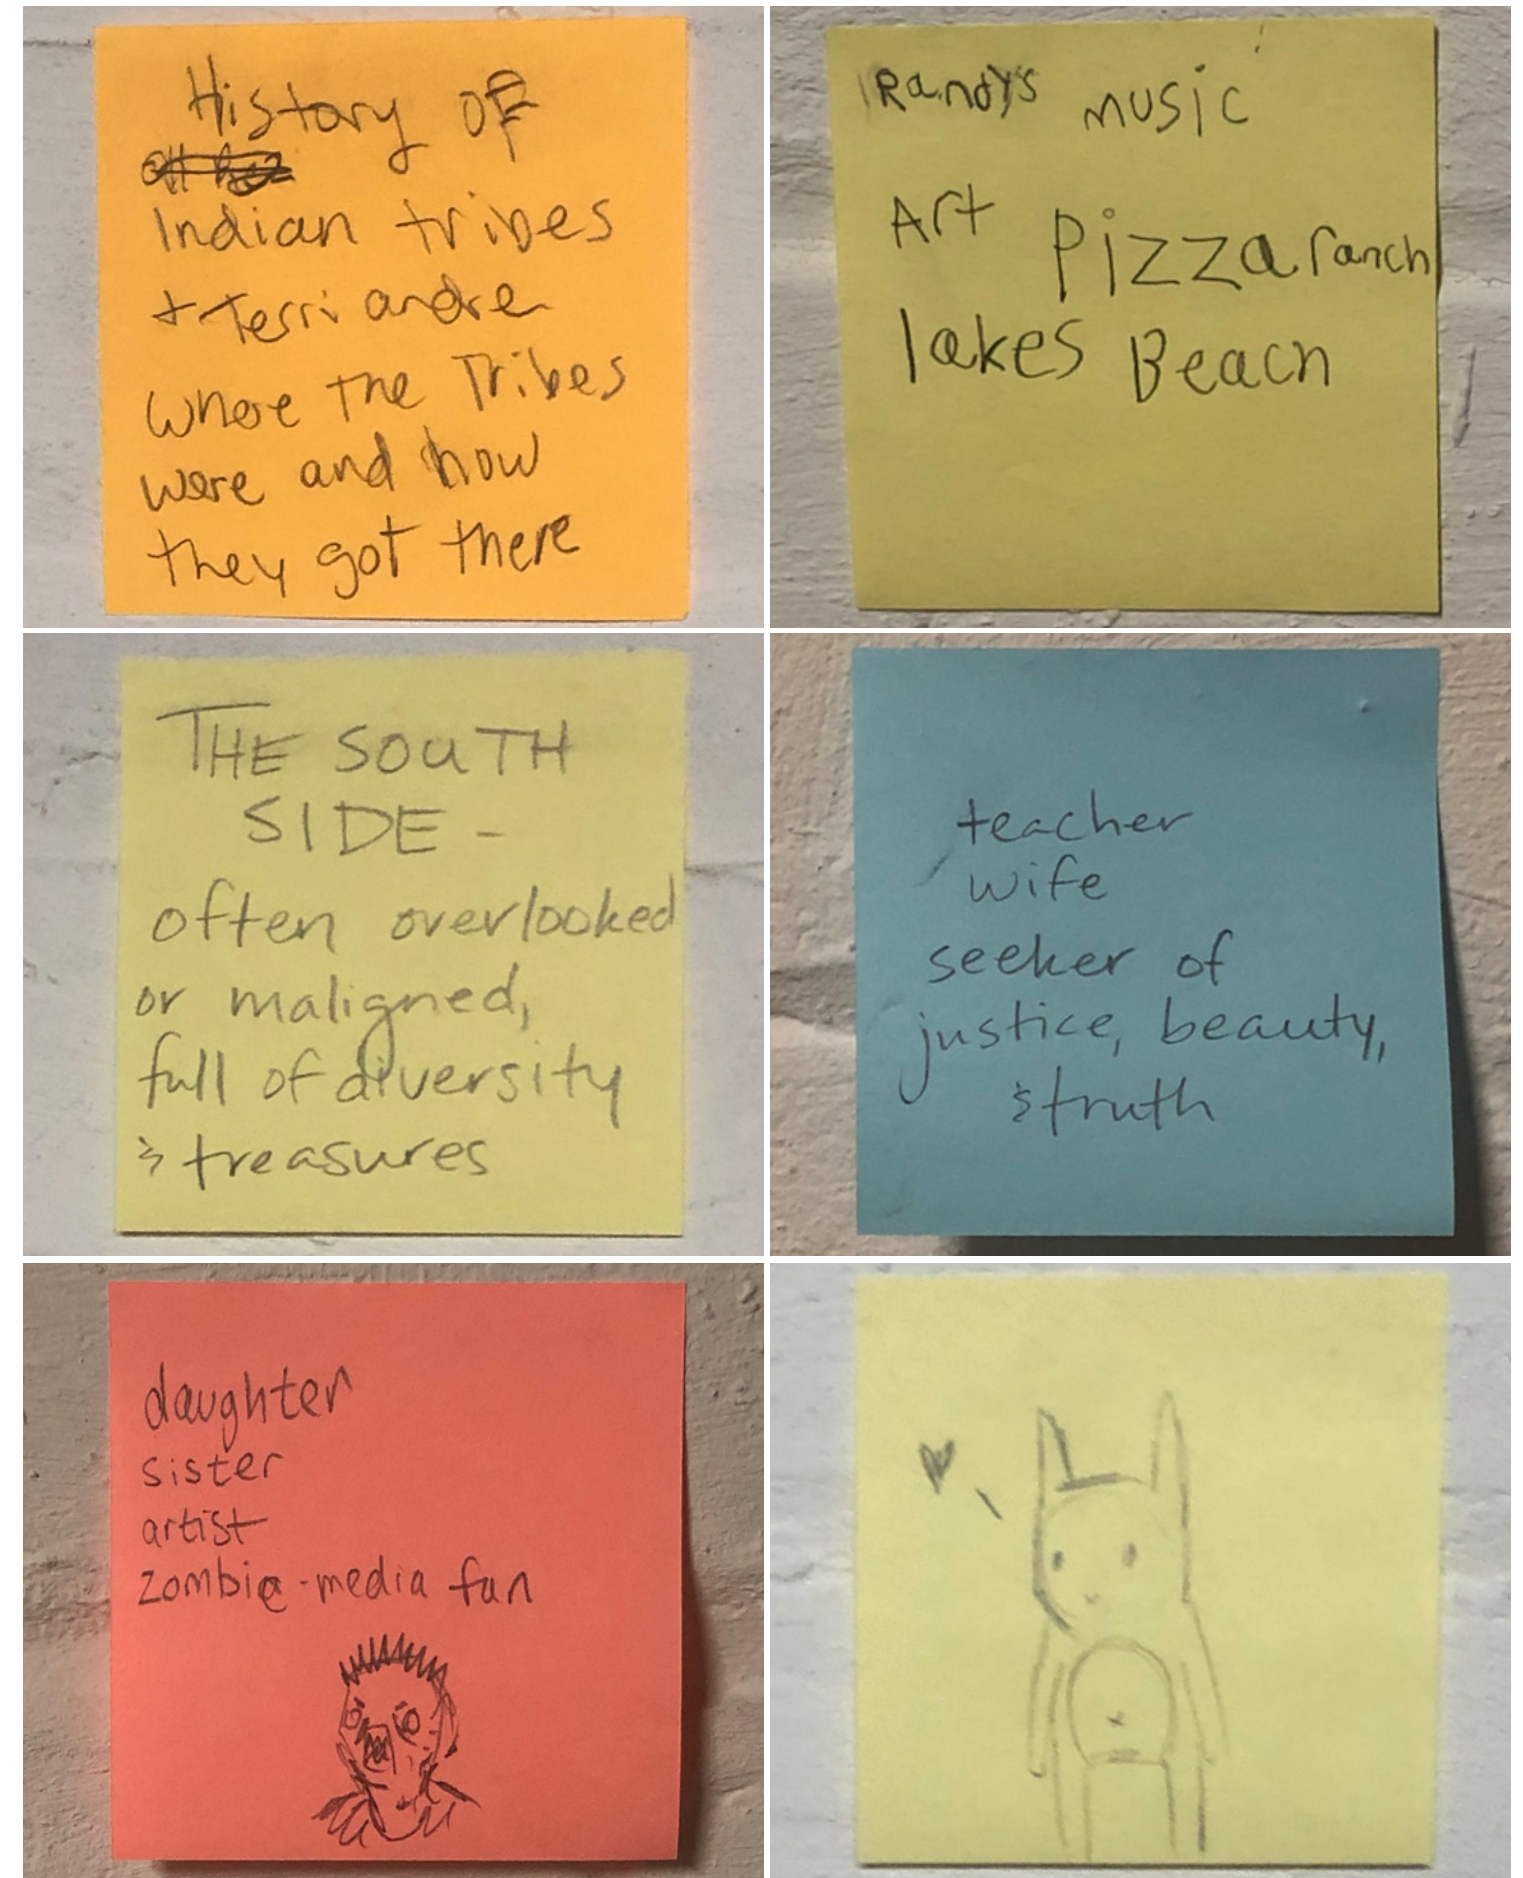 History of
Indian tribes
+ Terri andre
where the Tribes
were and how
they got there
Randy's music
Art Pizza ranch
lakes Beach
THE SOUTH
SIDE -
often overlooked
or maligned,
full of diversity
& treasures
teacher
wife
seeker of
justice, beauty,
& truth
daughter
sister
artist
zombie-media fan